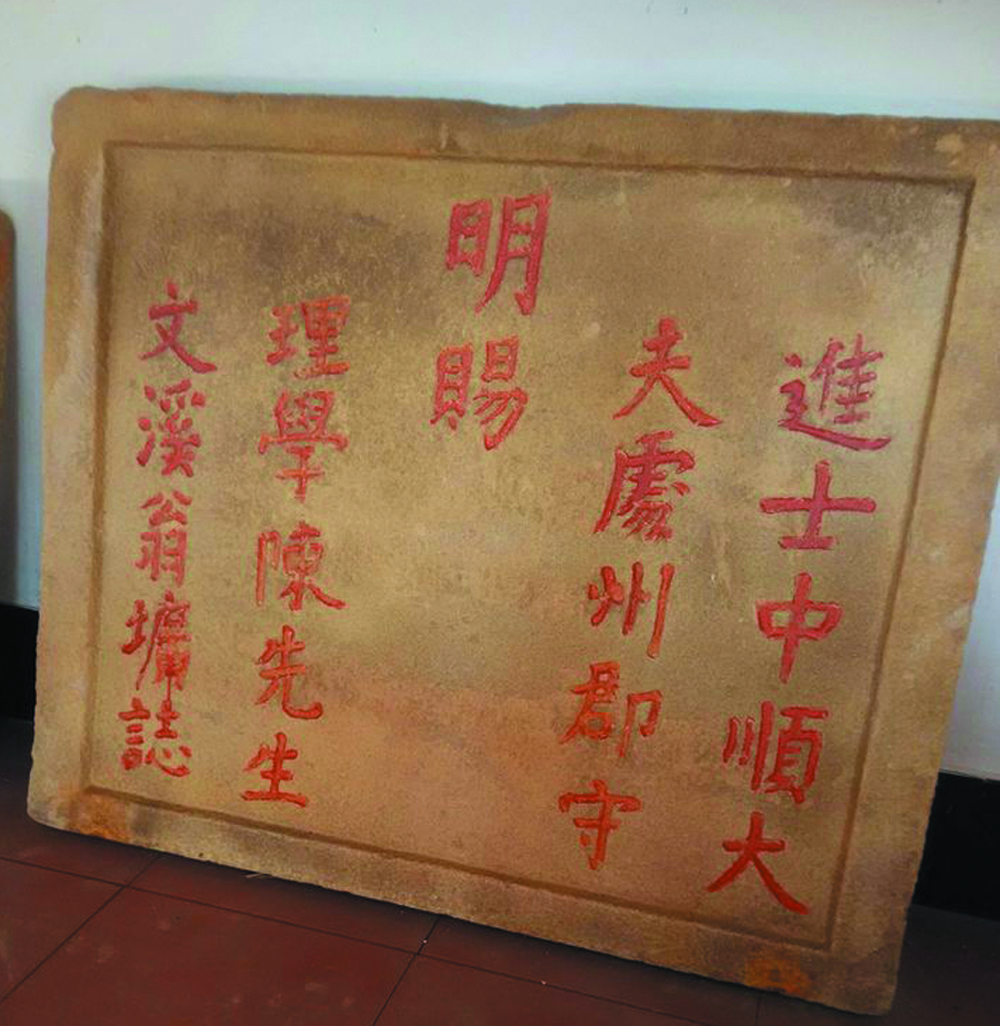 進士中順大
夫處州郡守
明賜
理學陳先生
文溪翁墉誌